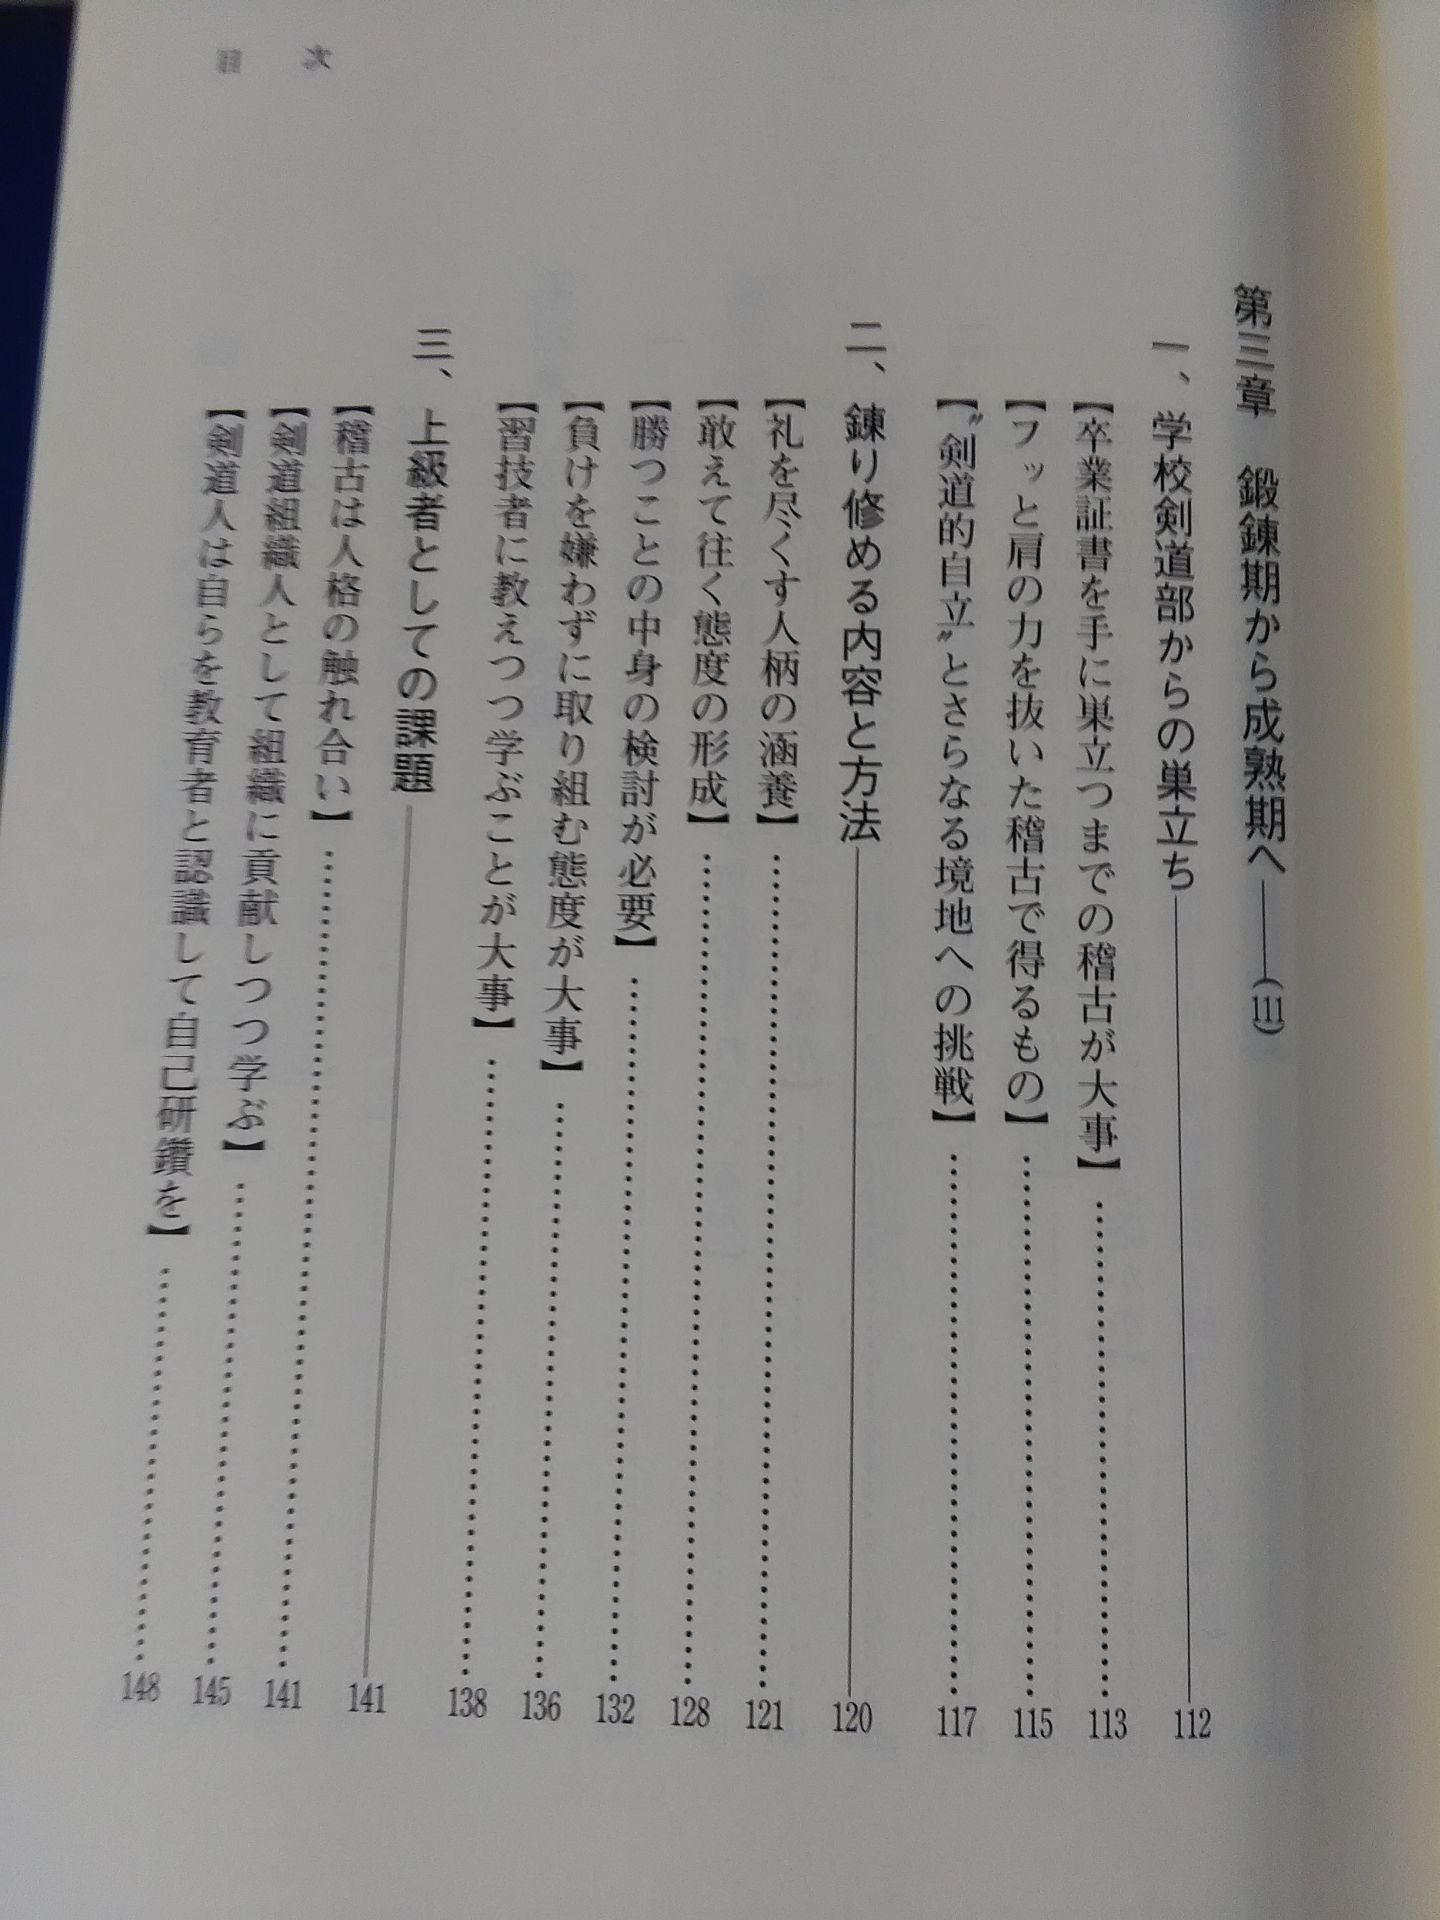 目　次
第三章　鍛錬期から成熟期へ――(111)
一、学校剣道部からの巣立ち――112
【卒業証書を手に巣立つまでの稽古が大事】……113
【フッと肩の力を抜いた稽古で得るもの】……115
【〝剣道的自立〟とさらなる境地への挑戦】……117
二、錬り修める内容と方法――120
【礼を尽くす人柄の涵養】……121
【敢えて往く態度の形成】……128
【勝つことの中身の検討が必要】……132
【負けを嫌わずに取り組む態度が大事】……136
【習技者に教えつつ学ぶことが大事】……138
三、上級者としての課題――141
【稽古は人格の触れ合い】……141
【剣道組織人として組織に貢献しつつ学ぶ】……145
【剣道人は自らを教育者と認識して自己研鑽を】……148